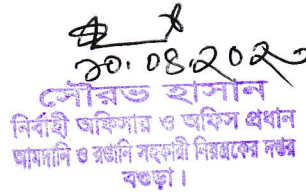 ২০.০৪.২০২
সৌরভ হাসান
নির্বাহী অফিসার ও অফিস প্রধান
আমদানি ও রপ্তানি সহকারী নিয়ন্ত্রকের দপ্তর
বগুড়া।